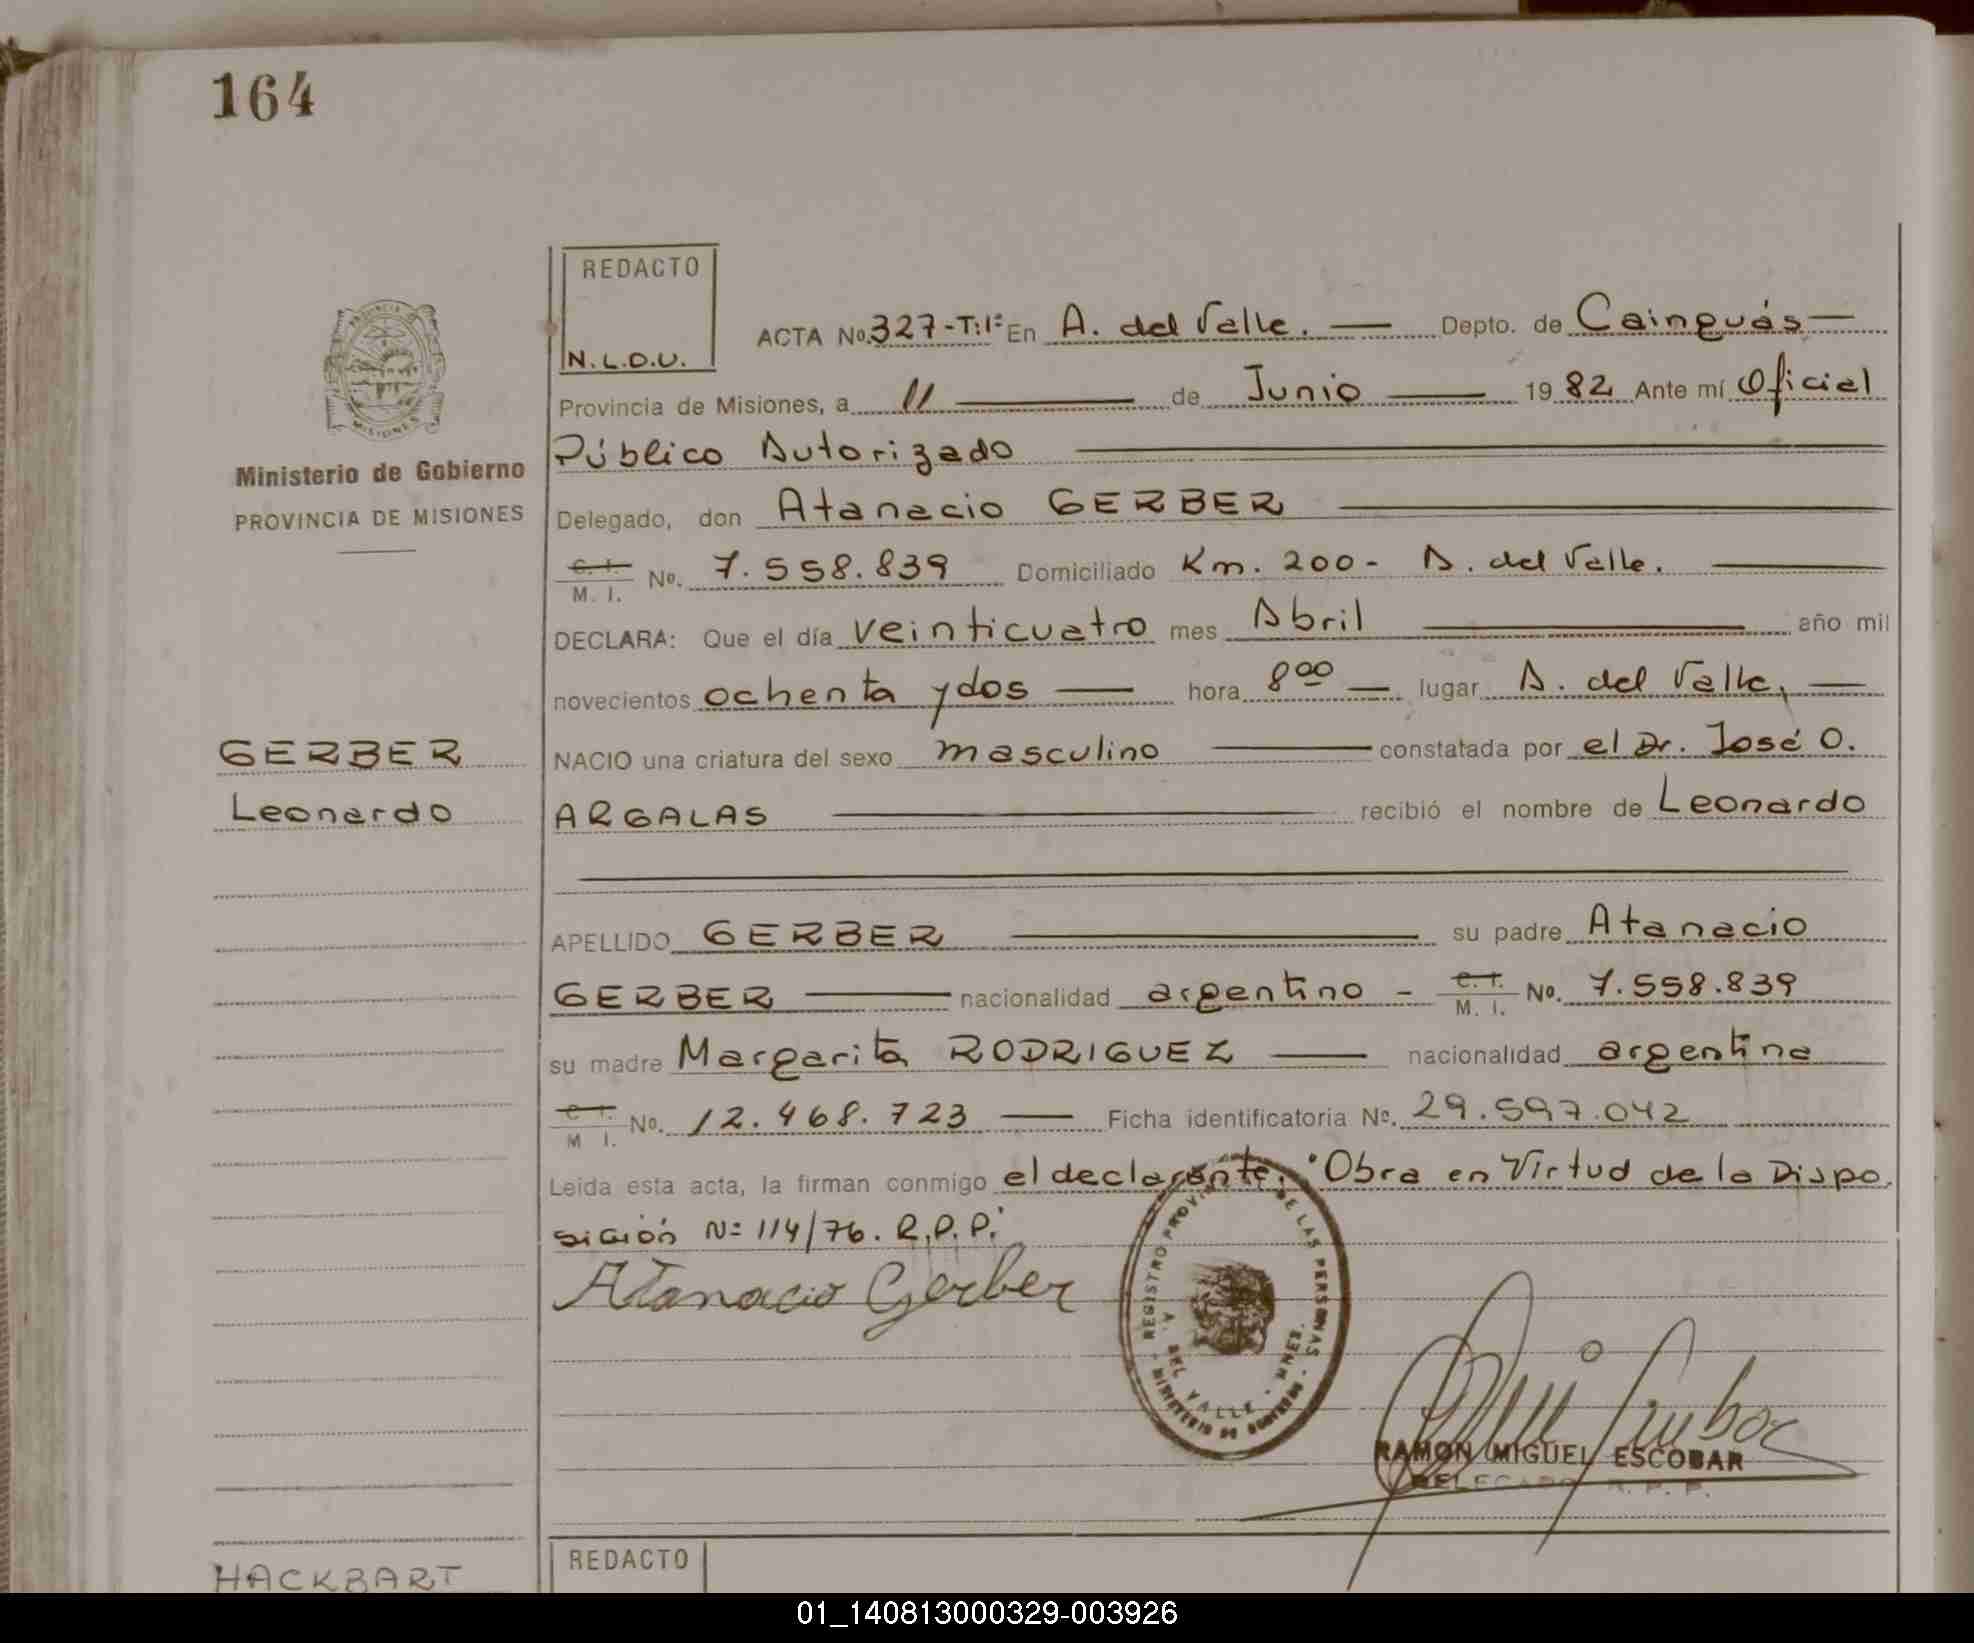 164
REDACTO
N.L.D.U.
ACTA No. 327-T:1º En A. del Valle. Depto. de Cainguás
Provincia de Misiones, a 11 de Junio 1982 Ante mí Oficial
Público Autorizado
Delegado, don Atanacio GERBER
C. I. / M. I. No. 7.558.839 Domiciliado Km. 200- A. del Valle.
DECLARA: Que el día veinticuatro mes Abril año mil
novecientos ochenta y dos hora 8 00 lugar A. del Valle,
NACIO una criatura del sexo masculino constatada por el Dr. José O.
ARGALAS recibió el nombre de Leonardo
APELLIDO GERBER su padre Atanacio
GERBER nacionalidad argentino - C. I. / M. I. No. 7.558.839
su madre Margarita RODRIGUEZ nacionalidad argentina
C. I. / M I. No. 12.468.723 Ficha identificatoria No. 29.597.042
Leída esta acta, la firman conmigo el declarante. "Obra en Virtud de la Dispo.
sición Nº 114/76. R.P.P."
Atanacio Gerber
REGISTRO PROV. DE LAS PERSONAS
A. DEL VALLE - MNES.
MINISTERIO DE GOBIERNO
RAMON MIGUEL ESCOBAR
DELEGADO R. P. P.
PROVINCIA DE
MISIONES
Ministerio de Gobierno
PROVINCIA DE MISIONES
GERBER
Leonardo
HACKBART
REDACTO
01_140813000329-003926